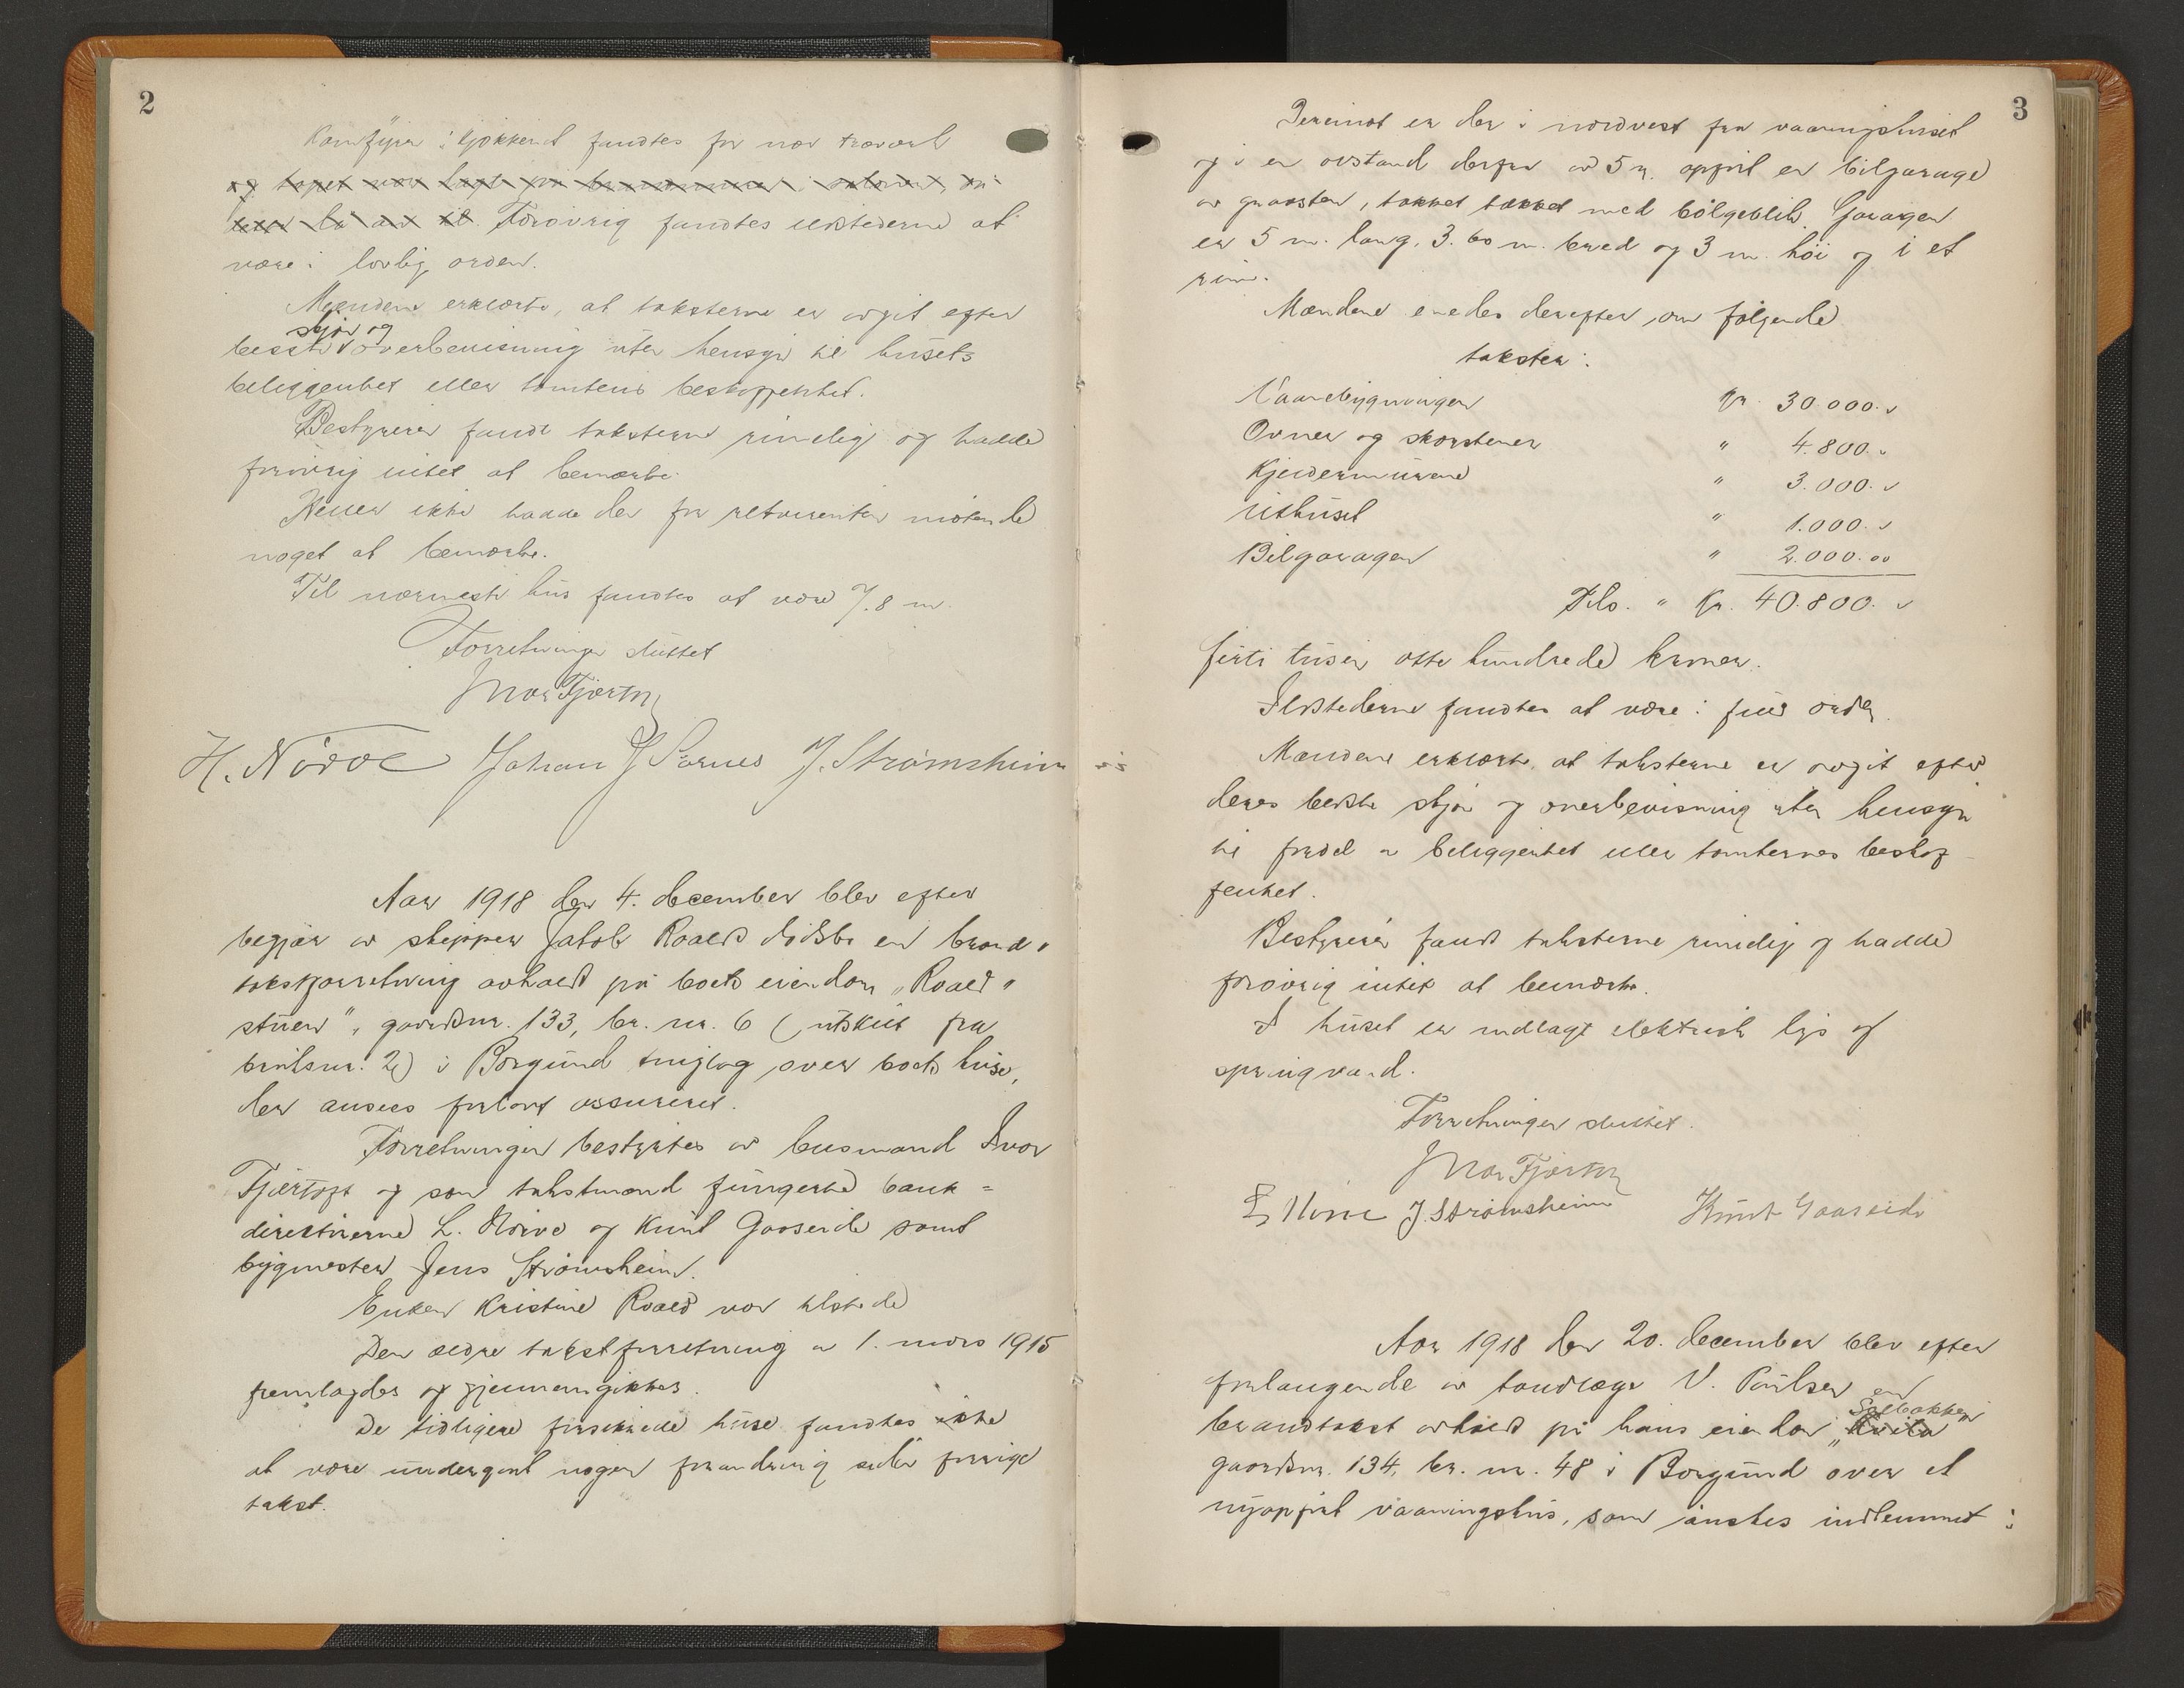 2
Komfyren i kjøkkenet fandtes for nær træverk
og tapet var lagt på brandmuren i salonen, on-
Forøvrig fandtes ildstederne at
være i lovlig orden.
Mændene erklærte, at taksterne er avgit efter
skjøn og
beste overbevisning uten hensyn til husets
beliggenhet eller tomtens beskaffenhet.
Bestyreren fandt taksterne rimelig og hadde
forøvrig intet at bemærke.
Heller ikke hadde den for rekvirenten møtende
noget at bemærke.
Til nærmeste hus fandtes at være 7.8 m.
Forretningen sluttet
Ivar Fjørtoft
H. Nörve Johan J Sørnes J. Strømsheim
Aar 1918 den 4. december blev efter
begjær av skipper Jakob Roalds dødsbo en brand-
takstforretning avholdt på boets eiendom "Roald"
stuen", gaardsnr. 133, br. nr. 6 (utskilt fra
bruksnr. 2) i Borgund tinglag over boets huse,
der ansees forlavt assureret.
Forretningen bestyrtes av lensmand Ivar
Fjørtoft og som takstmænd fungerte bank-
direktørerne L. Nörve og Knut Gaaseide samt
bygmester Jens Strømsheim.
Enken Kristine Roald var tilstede
Den ældre takstforretning av 1. mars 1915
fremlagdes og gjennemgikkes.
De tidligere forsikrede huse fandtes ikke
at være undergaat nogen forandring siden forrige
takst.
3
Dereimot er der i nordvest for vaaningshuset
og i en avstand derfra av 5 m. opført en bilgarage
av graasten, takket tækket med bølgeblik. Garagen
er 5 m. lang, 3.60 m. bred og 3 m. høi og i et
rum.
Mændene enedes derefter om følgende
takster:
Vaanebygningen kr. 30.000.
Ovner og skorstener " 4.800.
Kjeldermurene " 3.000.
Uthuset " 1.000.
Bilgaragen " 2.000.00
Tils. " kr. 40.800.
førti tusen otte hundrede kroner.
Ildstederne fandtes at være i fuld orden
Mændene erklærte, at taksterne er avgit efter
deres bedste skjøn og overbevisning uten hensyn
til fordel av beliggenhet eller tomternes beskaf-
fenhet.
Bestyreren fandt taksterne rimelig og hadde
forøvrig intet at bemærke.
I huset er indlagt elektrisk lys og
springvand.
Forretningen sluttet.
Ivar Fjørtoft
L Nörve J. Strømsheim Knut Gaaseide
Aar 1918 den 20. december blev efter
forlangende av tandlæge V. Paulsen en
Solbakken
brandtakst avholdt på hans eiendom "
gaardsnr. 134, br. nr. 48 i Borgund over et
nyopført vaaningshus, som ønskes indlemmet i